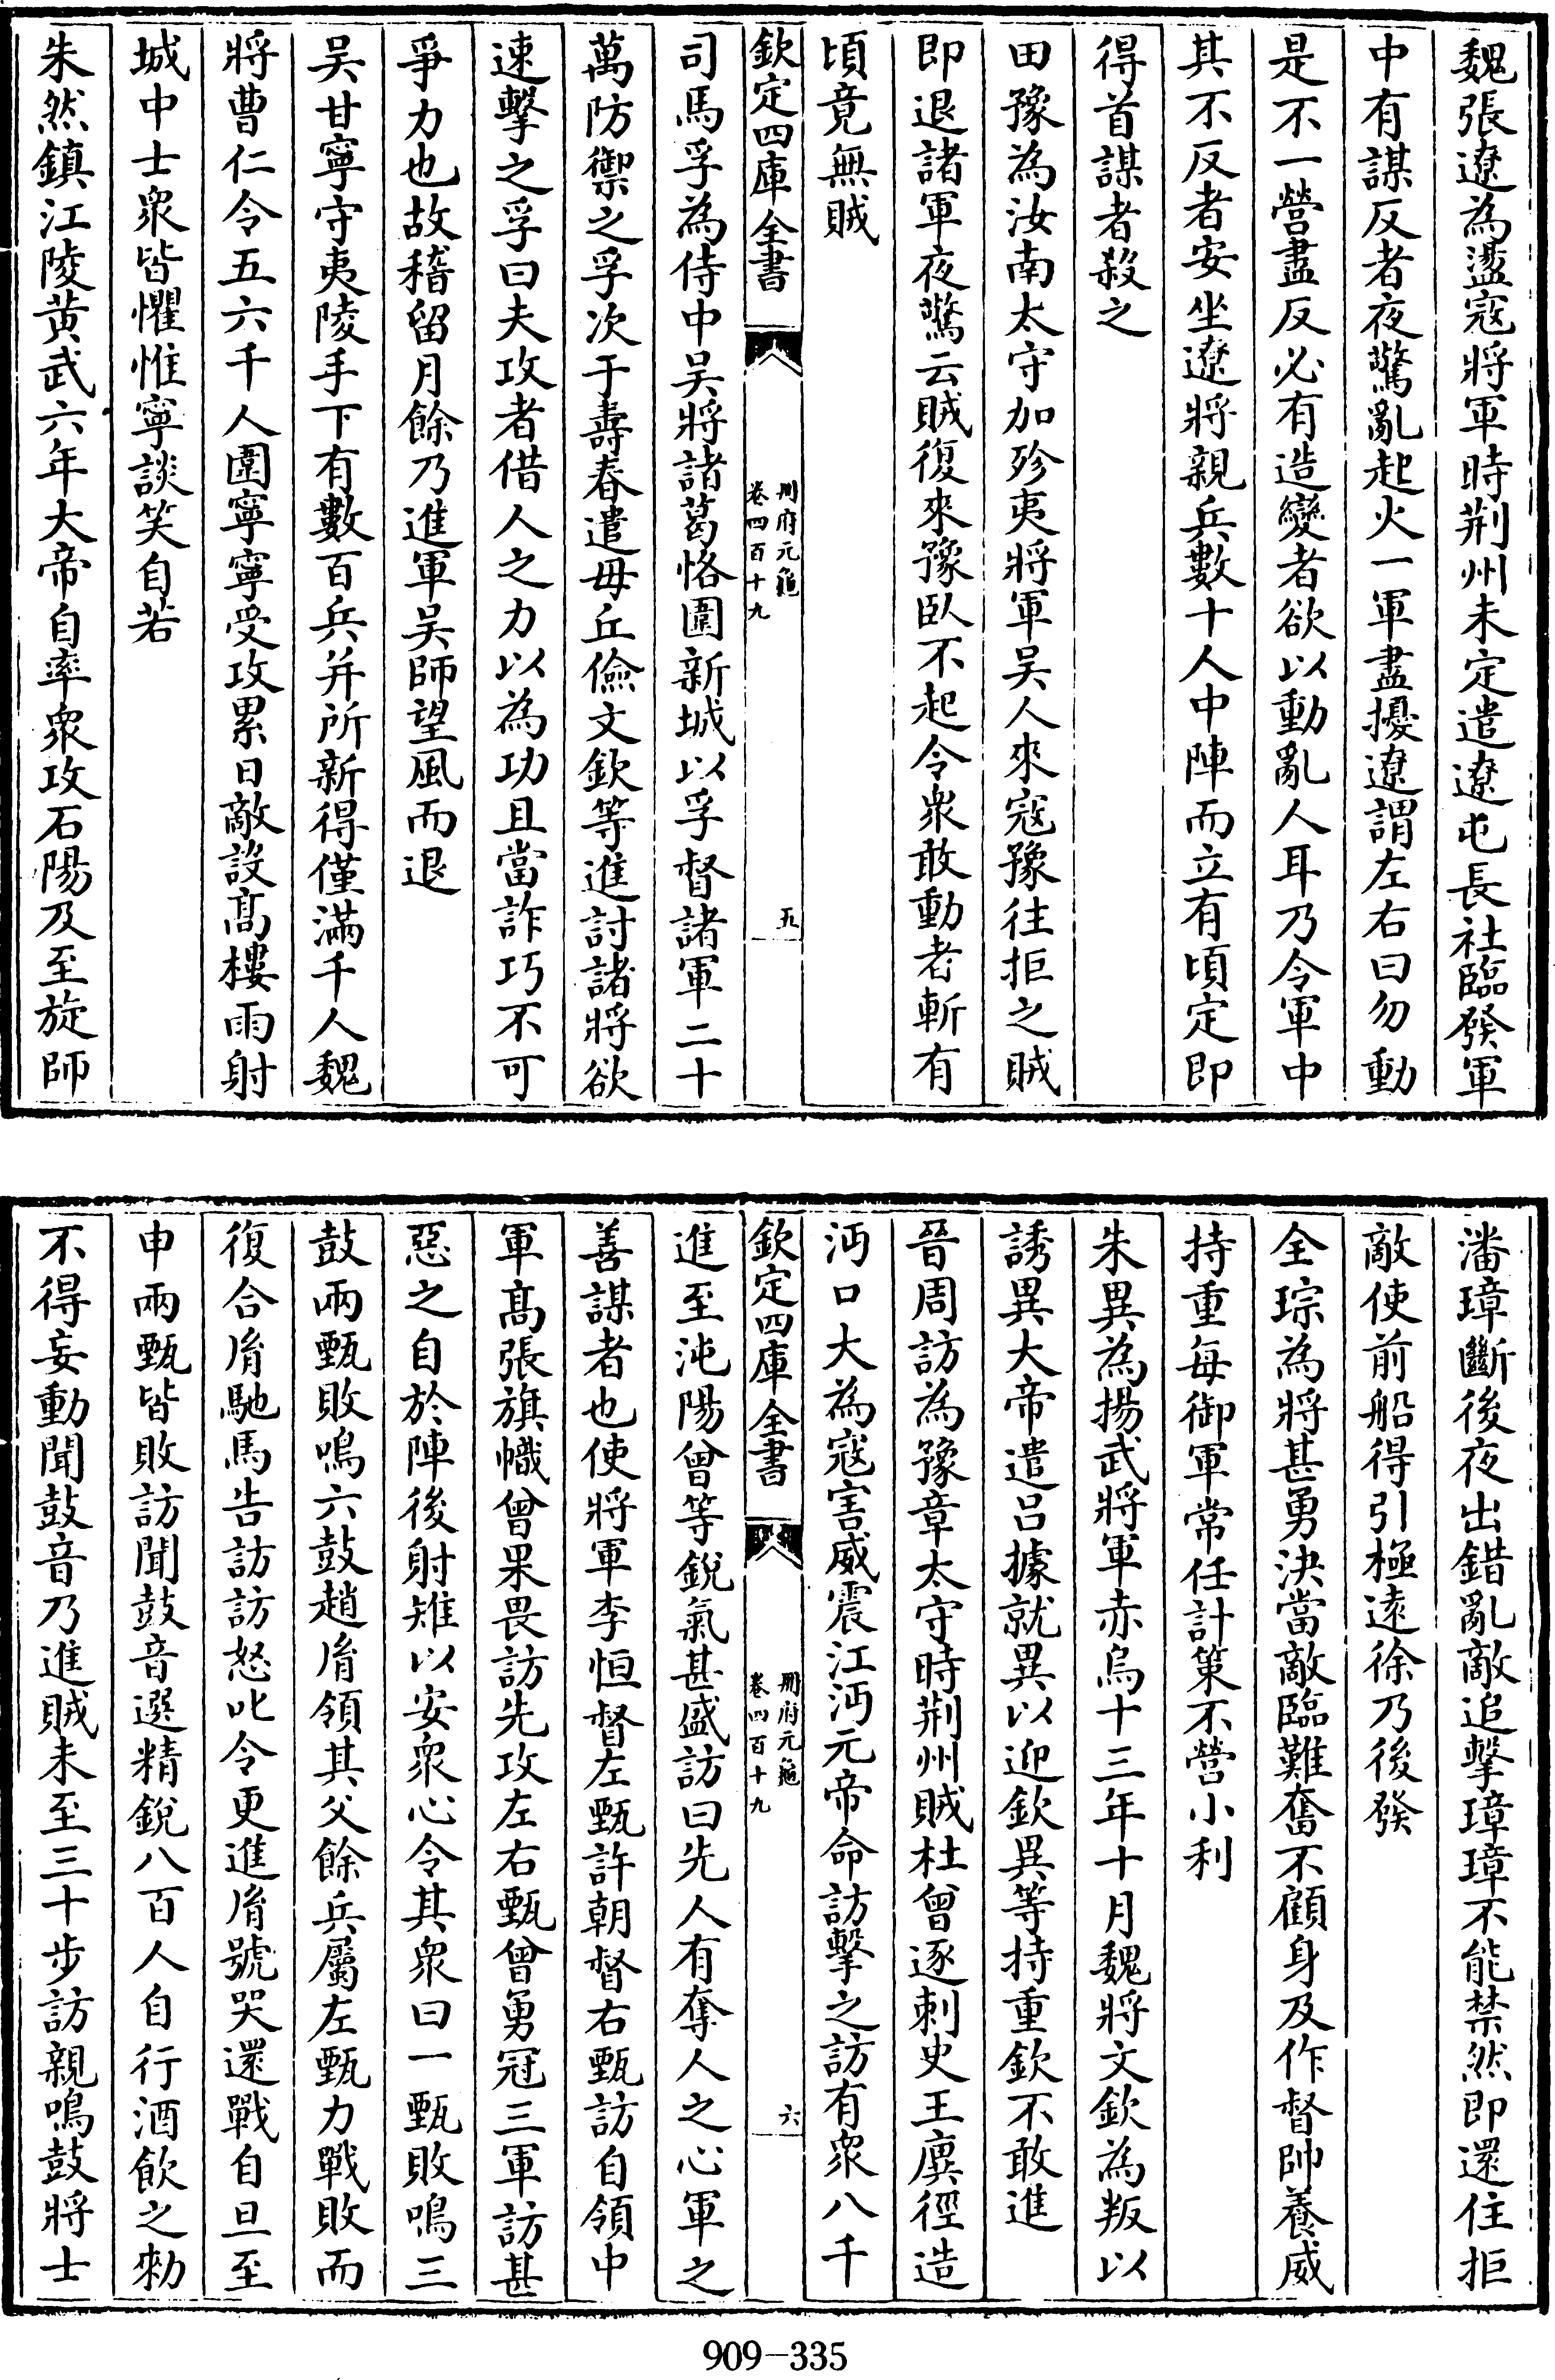 魏張遼為盪寇將軍時荆州未定遣遼屯長社臨發軍
中有謀反者夜驚亂起火一軍盡擾遼謂左右曰勿動
是不一營盡反必有造變者欲以動亂人耳乃令軍中
其不反者安坐遼將親兵數十人中陣而立有頃定即
得首謀者殺之
田豫為汝南太守加殄夷將軍吴人來寇豫往拒之賊
即退諸軍夜驚云賊復來豫臥不起令衆敢動者斬有
頃竟無賊
欽定四庫全書
冊府元龜
卷四百十九
五
司馬孚為侍中吴將諸葛恪圍新城以孚督諸軍二十
萬防禦之孚次于壽春遣毋丘儉文欽等進討諸將欲
速擊之孚曰夫攻者借人之力以為功且當詐巧不可
爭力也故稽留月餘乃進軍吴師望風而退
吴甘寧守夷陵手下有數百兵并所新得僅滿千人魏
將曹仁令五六千人圍寧寧受攻累日敵設髙樓雨射
城中士衆皆懼惟寧談笑自若
朱然鎮江陵黄武六年大帝自率衆攻石陽及至旋師
潘璋斷後夜出錯亂敵追擊璋璋不能禁然即還住拒
敵使前船得引極遠徐乃後發
全琮為將甚勇決當敵臨難奮不顧身及作督帥養威
持重每御軍常任計策不營小利
朱異為揚武將軍赤烏十三年十月魏將文欽為叛以
誘異大帝遣吕據就異以迎欽異等持重欽不敢進
晉周訪為豫章太守時荆州賊杜曾逐刺史王廙徑造
沔口大為寇害威震江沔元帝命訪擊之訪有衆八千
欽定四庫全書
冊府元龜
卷四百十九
六
進至沌陽曾等銳氣甚盛訪曰先人有奪人之心軍之
善謀者也使將軍李恒督左甄許朝督右甄訪自領中
軍髙張旗幟曾果畏訪先攻左右甄曾勇冠三軍訪甚
惡之自於陣後射雉以安衆心令其衆曰一甄敗鳴三
鼓兩甄敗鳴六鼓趙胤領其父餘兵屬左甄力戰敗而
復合胤馳馬告訪訪怒叱令更進胤號哭還戰自旦至
申兩甄皆敗訪聞鼓音選精銳八百人自行酒飲之勑
不得妄動聞鼓音乃進賊未至三十步訪親鳴鼓將士
909-335